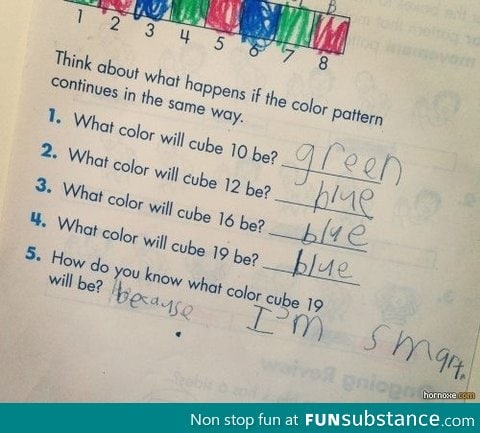 B
1 2 3 4 5 6 7 8
Think about what happens if the color pattern
continues in the same way.
1. What color will cube 10 be? green
2. What color will cube 12 be? blue
3. What color will cube 16 be? blue
4. What color will cube 19 be? blue
5. How do you know what color cube 19
will be? because I'm smart.
hornoxe.com
Non stop fun at FUNsubstance.com